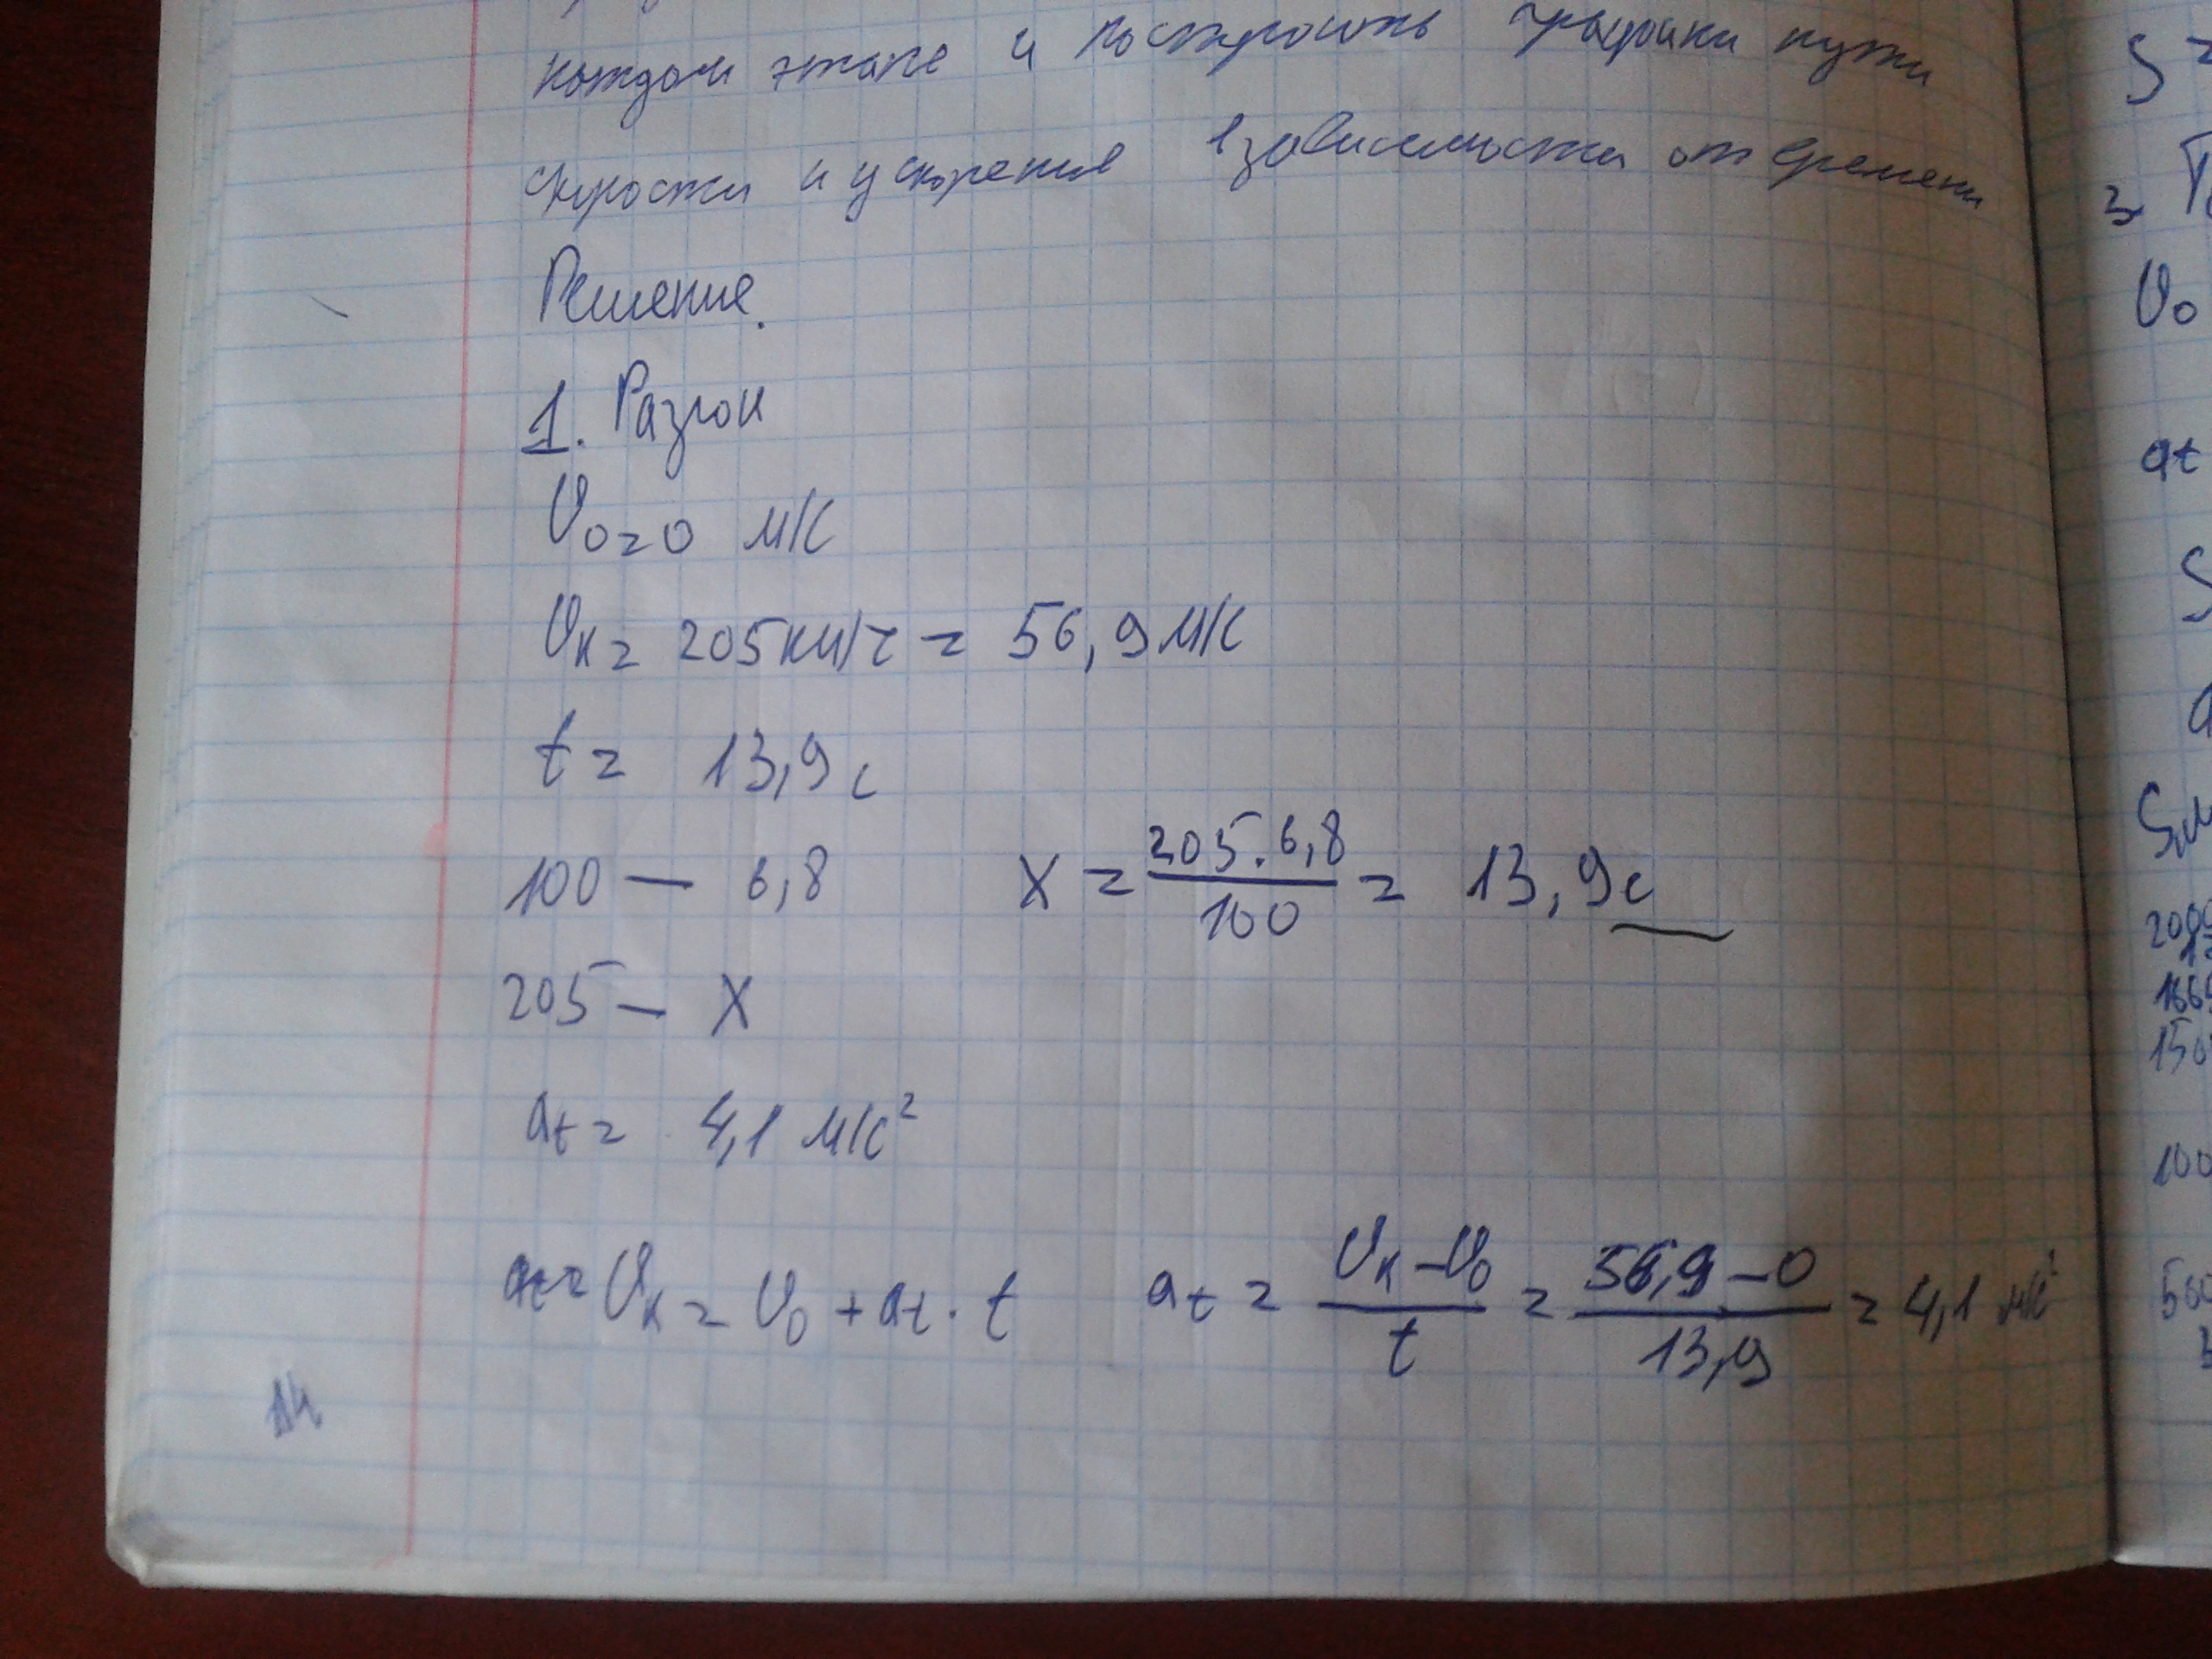 каждом этапе и построить графики пути
скорости и ускорения в зависимости от времени
Решение.
1. Разгон
V₀=0 м/с
Vк= 205км/ч = 56,9м/с
t= 13,9с
100 — 6,8 X = 205·6,8/100 = 13,9с
205 — X
at= 4,1 м/с²
at= Vк = V₀ + at · t at = Vк-V₀/t = 56,9-0/13,9 = 4,1 м/с²
14
S=
3.
V₀
at
S
2000
100